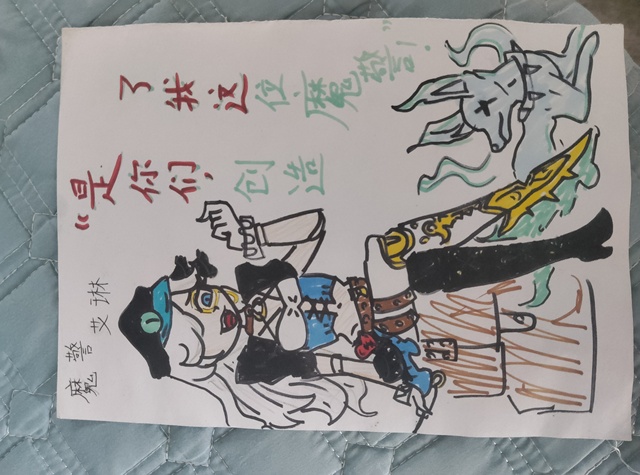 魔警艾琳
“是你们，创造
了我这位魔警！”